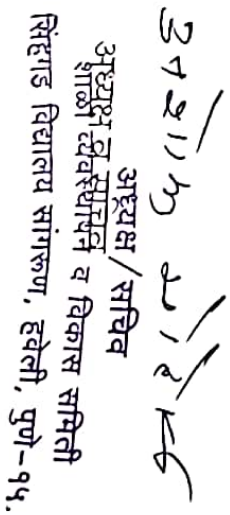 अध्यक्ष / सचिव
अध्यक्ष व सचिव
शाळा व्यवस्थापन व विकास समिती
सिंहगड विद्यालय सांगरुण, हवेली, पुणे-१५.